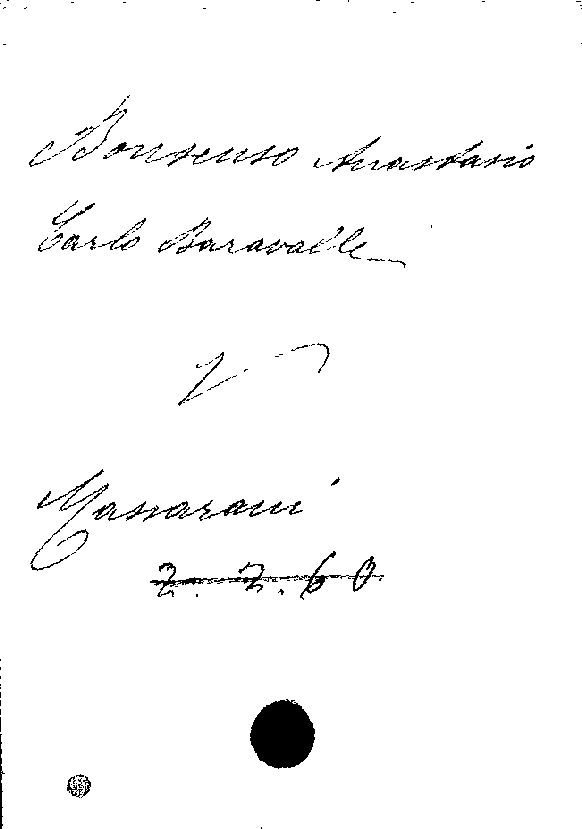 Bonsenso Anastasio
Carlo Baravalle
Massarani
2. 2. 60